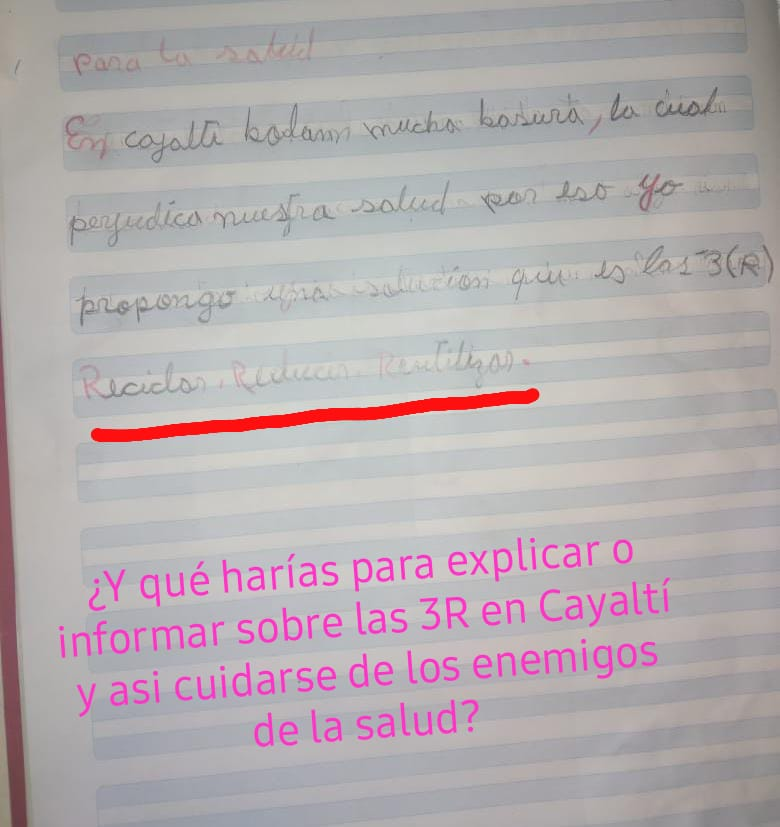 para la salud
En cayaltí botamn mucha basura, la cual
perjudica nuestra salud por eso yo
propongo una solución que es las 3(R)
Reciclar, Reducir. Reutilizar.
¿Y qué harías para explicar o
informar sobre las 3R en Cayaltí
y asi cuidarse de los enemigos
de la salud?